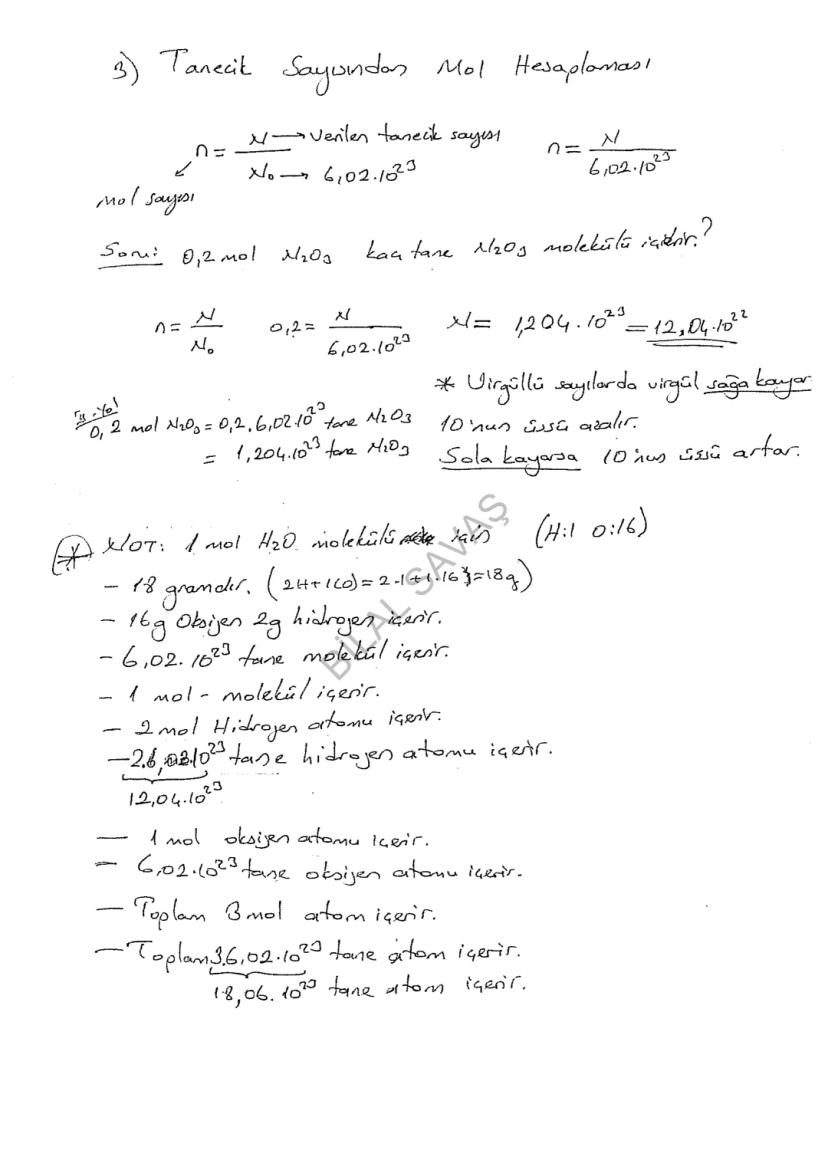 3) Tanecik Sayısından Mol Hesaplaması
n = N → verilen tanecik sayısı / N₀ → 6,02.10²³
n = N / 6,02.10²³
mol sayısı
Soru: 0,2 mol N₂O₃ kaç tane N₂O₃ molekülü içerir?
n = N / N₀ 0,2 = N / 6,02.10²³ N = 1,204.10²³ = 12,04.10²²
* Virgüllü sayılarda virgül sağa kayar
II. Yol
0,2 mol N₂O₃ = 0,2.6,02.10²³ tane N₂O₃ 10'nun üssü azalır.
= 1,204.10²³ tane N₂O₃ Sola kayarsa 10'nus üssü artar.
* NOT: 1 mol H₂O molekülü için (H:1 O:16)
- 18 gramdır. (2H+1(O)=2.1+1.16=18g)
- 16g Oksijen 2g hidrojen içerir.
- 6,02.10²³ tane molekül içerir.
- 1 mol - molekül içerir.
- 2 mol Hidrojen atomu içerir.
- 2.6,02.10²³ tane hidrojen atomu içerir.
12,04.10²³
- 1 mol oksijen atomu içerir.
- 6,02.10²³ tane oksijen atomu içerir.
- Toplam 3 mol atom içerir.
- Toplam 3.6,02.10²³ tane atom içerir.
18,06.10²³ tane atom içerir.
BİLAL SAVAŞ